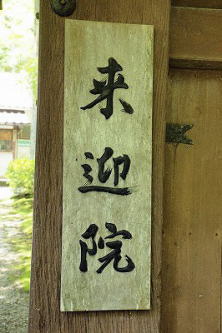 来迎院